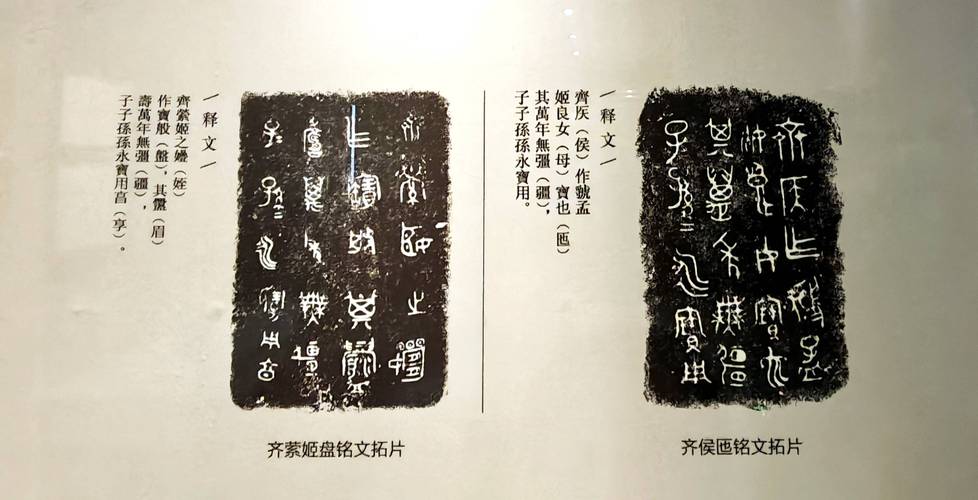 ╱释文╱
齊矦（侯）作虢孟
姬良女（母）寶也（匜）
其萬年無彊（疆），
子子孫孫永寶用。
齐侯匜铭文拓片
╱释文╱
齊縈姬之嫚（姪）
作寶般（盤），其釁（眉）
壽萬年無彊（疆），
子子孫孫永寶用亯（享）。
齐萦姬盘铭文拓片